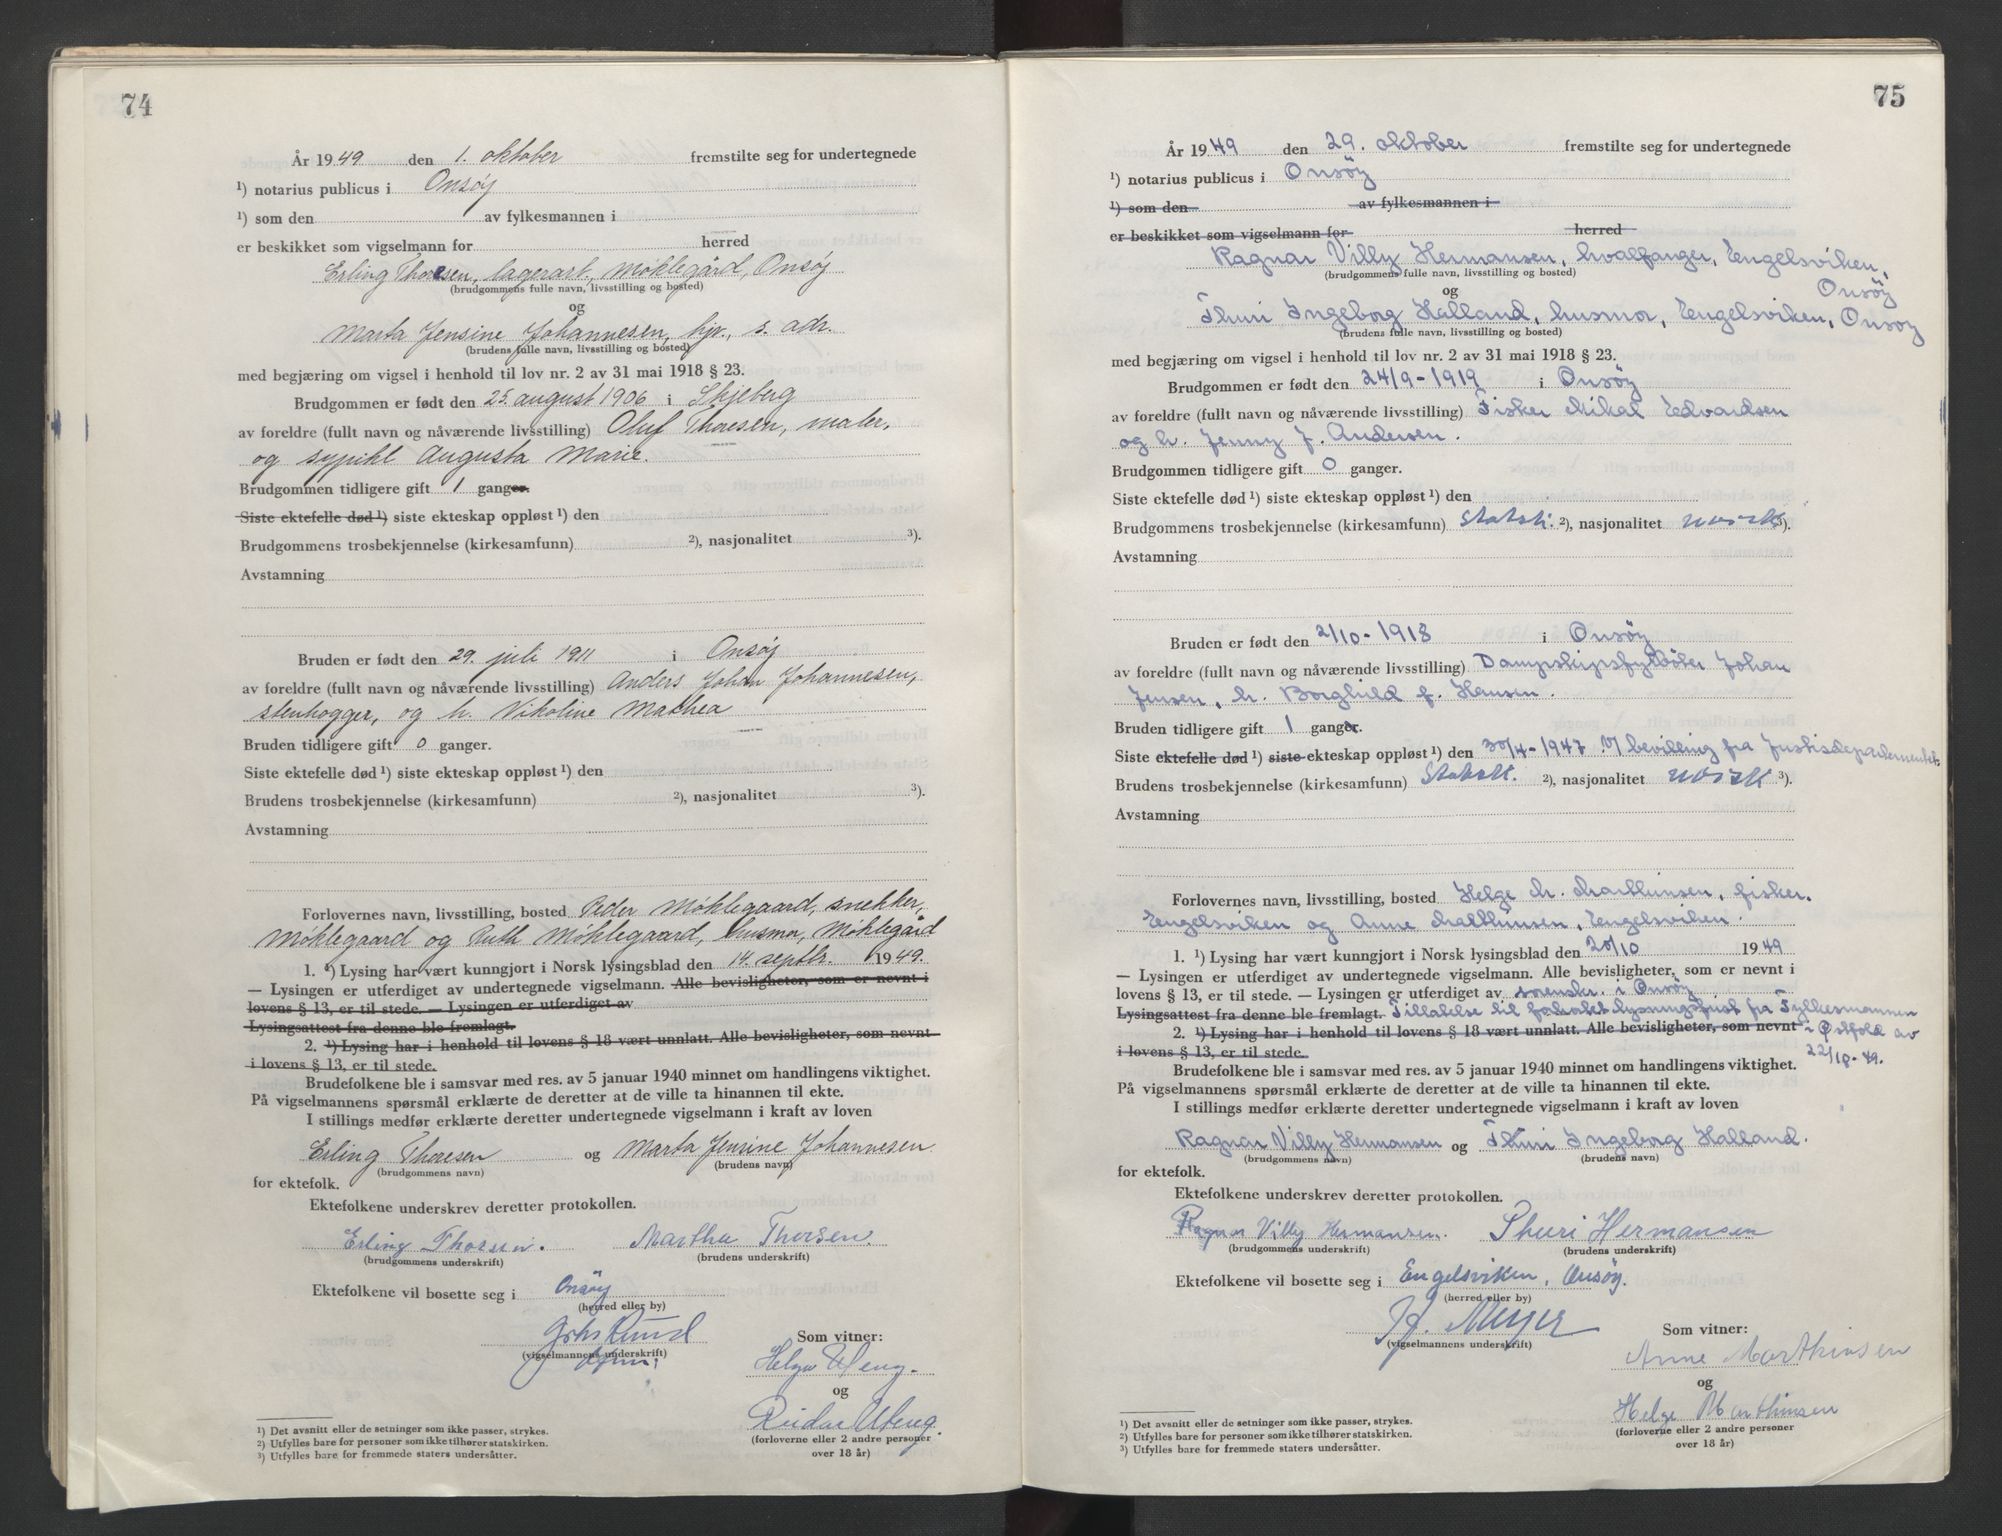 74
År 1949 den 1. oktober fremstilte seg for undertegnede
¹) notarius publicus i Onsøy
¹) som den av fylkesmannen i
er beskikket som vigselmann for herred
Erling Thoresen, lagerarb. Møklegård, Onsøy
(brudgommens fulle navn, livsstilling og bosted)
og
Marta Jensine Johannesen, hjv., s. adr.
(brudens fulle navn, livsstilling og bosted)
med begjæring om vigsel i henhold til lov nr. 2 av 31 mai 1918 § 23.
Brudgommen er født den 25. august 1906 i Skjeberg
av foreldre (fullt navn og nåværende livsstilling) Oluf Thoresen, maler,
og Augusta Marie.
Brudgommen tidligere gift 1 ganger.
Siste ektefelle død ¹) siste ekteskap oppløst ¹) den
Brudgommens trosbekjennelse (kirkesamfunn) ²), nasjonalitet ³).
Avstamning
Bruden er født den 29. juli 1911 i Onsøy
av foreldre (fullt navn og nåværende livsstilling) Anders Johan Johannesen,
stenhogger, og h. Nikoline Mathea
Bruden tidligere gift 0 ganger.
Siste ektefelle død ¹) siste ekteskap oppløst ¹) den
Brudens trosbekjennelse (kirkesamfunn) ²), nasjonalitet ³).
Avstamning
Forlovernes navn, livsstilling, bosted Peder Møklegaard, snekker,
Møklegaard og Ruth Møklegaard, husmor, Møklegård
1. ¹) Lysing har vært kunngjort i Norsk lysingsblad den 14. septbr. 1949.
— Lysingen er utferdiget av undertegnede vigselmann. Alle bevisligheter, som er nevnt i
lovens § 13, er til stede. — Lysingen er utferdiget av
Lysingsattest fra denne ble fremlagt.
2. ¹) Lysing har i henhold til lovens § 18 vært unnlatt. Alle bevisligheter, som nevnt
i lovens § 13, er til stede.
Brudefolkene ble i samsvar med res. av 5 januar 1940 minnet om handlingens viktighet.
På vigselmannens spørsmål erklærte de deretter at de ville ta hinannen til ekte.
I stillings medfør erklærte deretter undertegnede vigselmann i kraft av loven
Erling Thoresen og Marta Jensine Johannesen
(brudgommens navn) (brudens navn)
for ektefolk.
Ektefolkene underskrev deretter protokollen.
Erling Thoresen. Martha Thorsen.
(brudgommens underskrift) (brudens underskrift)
Ektefolkene vil bosette seg i Onsøy
(herred eller by)
Som vitner:
(vigselmannens underskrift)
Helga Uteng.
og
Reidar Uteng.
(forloverne eller 2 andre personer
over 18 år)
¹) Det avsnitt eller de setninger som ikke passer, strykes.
²) Utfylles bare for personer som ikke tilhører statskirken.
³) Utfylles bare for fremmede staters undersåtter.
75
År 1949 den 29. oktober fremstilte seg for undertegnede
¹) notarius publicus i Onsöy
¹) som den av fylkesmannen i
er beskikket som vigselmann for herred
Ragnar Villy Hermansen, hvalfanger, Engelsviken,
Onsöy
(brudgommens fulle navn, livsstilling og bosted)
og
Thuri Ingeborg Halland, husmor, Engelsviken, Onsöy
(brudens fulle navn, livsstilling og bosted)
med begjæring om vigsel i henhold til lov nr. 2 av 31 mai 1918 § 23.
Brudgommen er født den 24/9-1919 i Onsöy
av foreldre (fullt navn og nåværende livsstilling) Fisker Mikal Edvardsen
og h. Jenny f. Andersen.
Brudgommen tidligere gift 0 ganger.
Siste ektefelle død ¹) siste ekteskap oppløst ¹) den
Brudgommens trosbekjennelse (kirkesamfunn) Statsk. ²), nasjonalitet norsk ³).
Avstamning
Bruden er født den 2/10-1918 i Onsöy
av foreldre (fullt navn og nåværende livsstilling) Dampskipsfyrböter Johan
Jensen, h. Borghild f. Hansen.
Bruden tidligere gift 1 ganger.
Siste ektefelle død ¹) siste ekteskap oppløst ¹) den 30/4-1947 v/ bevilling fra Justisdepartementet
Brudens trosbekjennelse (kirkesamfunn) Statsk. ²), nasjonalitet norsk ³).
Avstamning
Forlovernes navn, livsstilling, bosted Helge M. Marthinsen, fisker,
Engelsviken og Anne Marthinsen, Engelsviken.
1. ¹) Lysing har vært kunngjort i Norsk lysingsblad den 20/10 1949
— Lysingen er utferdiget av undertegnede vigselmann. Alle bevisligheter, som er nevnt i
lovens § 13, er til stede. — Lysingen er utferdiget av sorenskr. i Onsöy
Lysingsattest fra denne ble fremlagt. Tillatelse til forkortet lysningsfrist fra Fylkesmannen
2. ¹) Lysing har i henhold til lovens § 18 vært unnlatt. Alle bevisligheter, som nevnt i Østfold av
i lovens § 13, er til stede. 22/10-49.
Brudefolkene ble i samsvar med res. av 5 januar 1940 minnet om handlingens viktighet.
På vigselmannens spørsmål erklærte de deretter at de ville ta hinannen til ekte.
I stillings medfør erklærte deretter undertegnede vigselmann i kraft av loven
Ragnar Villy Hermansen og Thuri Ingeborg Halland.
(brudgommens navn) (brudens navn)
for ektefolk.
Ektefolkene underskrev deretter protokollen.
Ragnar Villy Hermansen. Thuri Hermansen
(brudgommens underskrift) (brudens underskrift)
Ektefolkene vil bosette seg i Engelsviken, Onsøy.
(herred eller by)
Meyer
Som vitner:
(vigselmannens underskrift)
Anne Marthinsen
og
Helge Marthinsen
(forloverne eller 2 andre personer
over 18 år)
¹) Det avsnitt eller de setninger som ikke passer, strykes.
²) Utfylles bare for personer som ikke tilhører statskirken.
³) Utfylles bare for fremmede staters undersåtter.